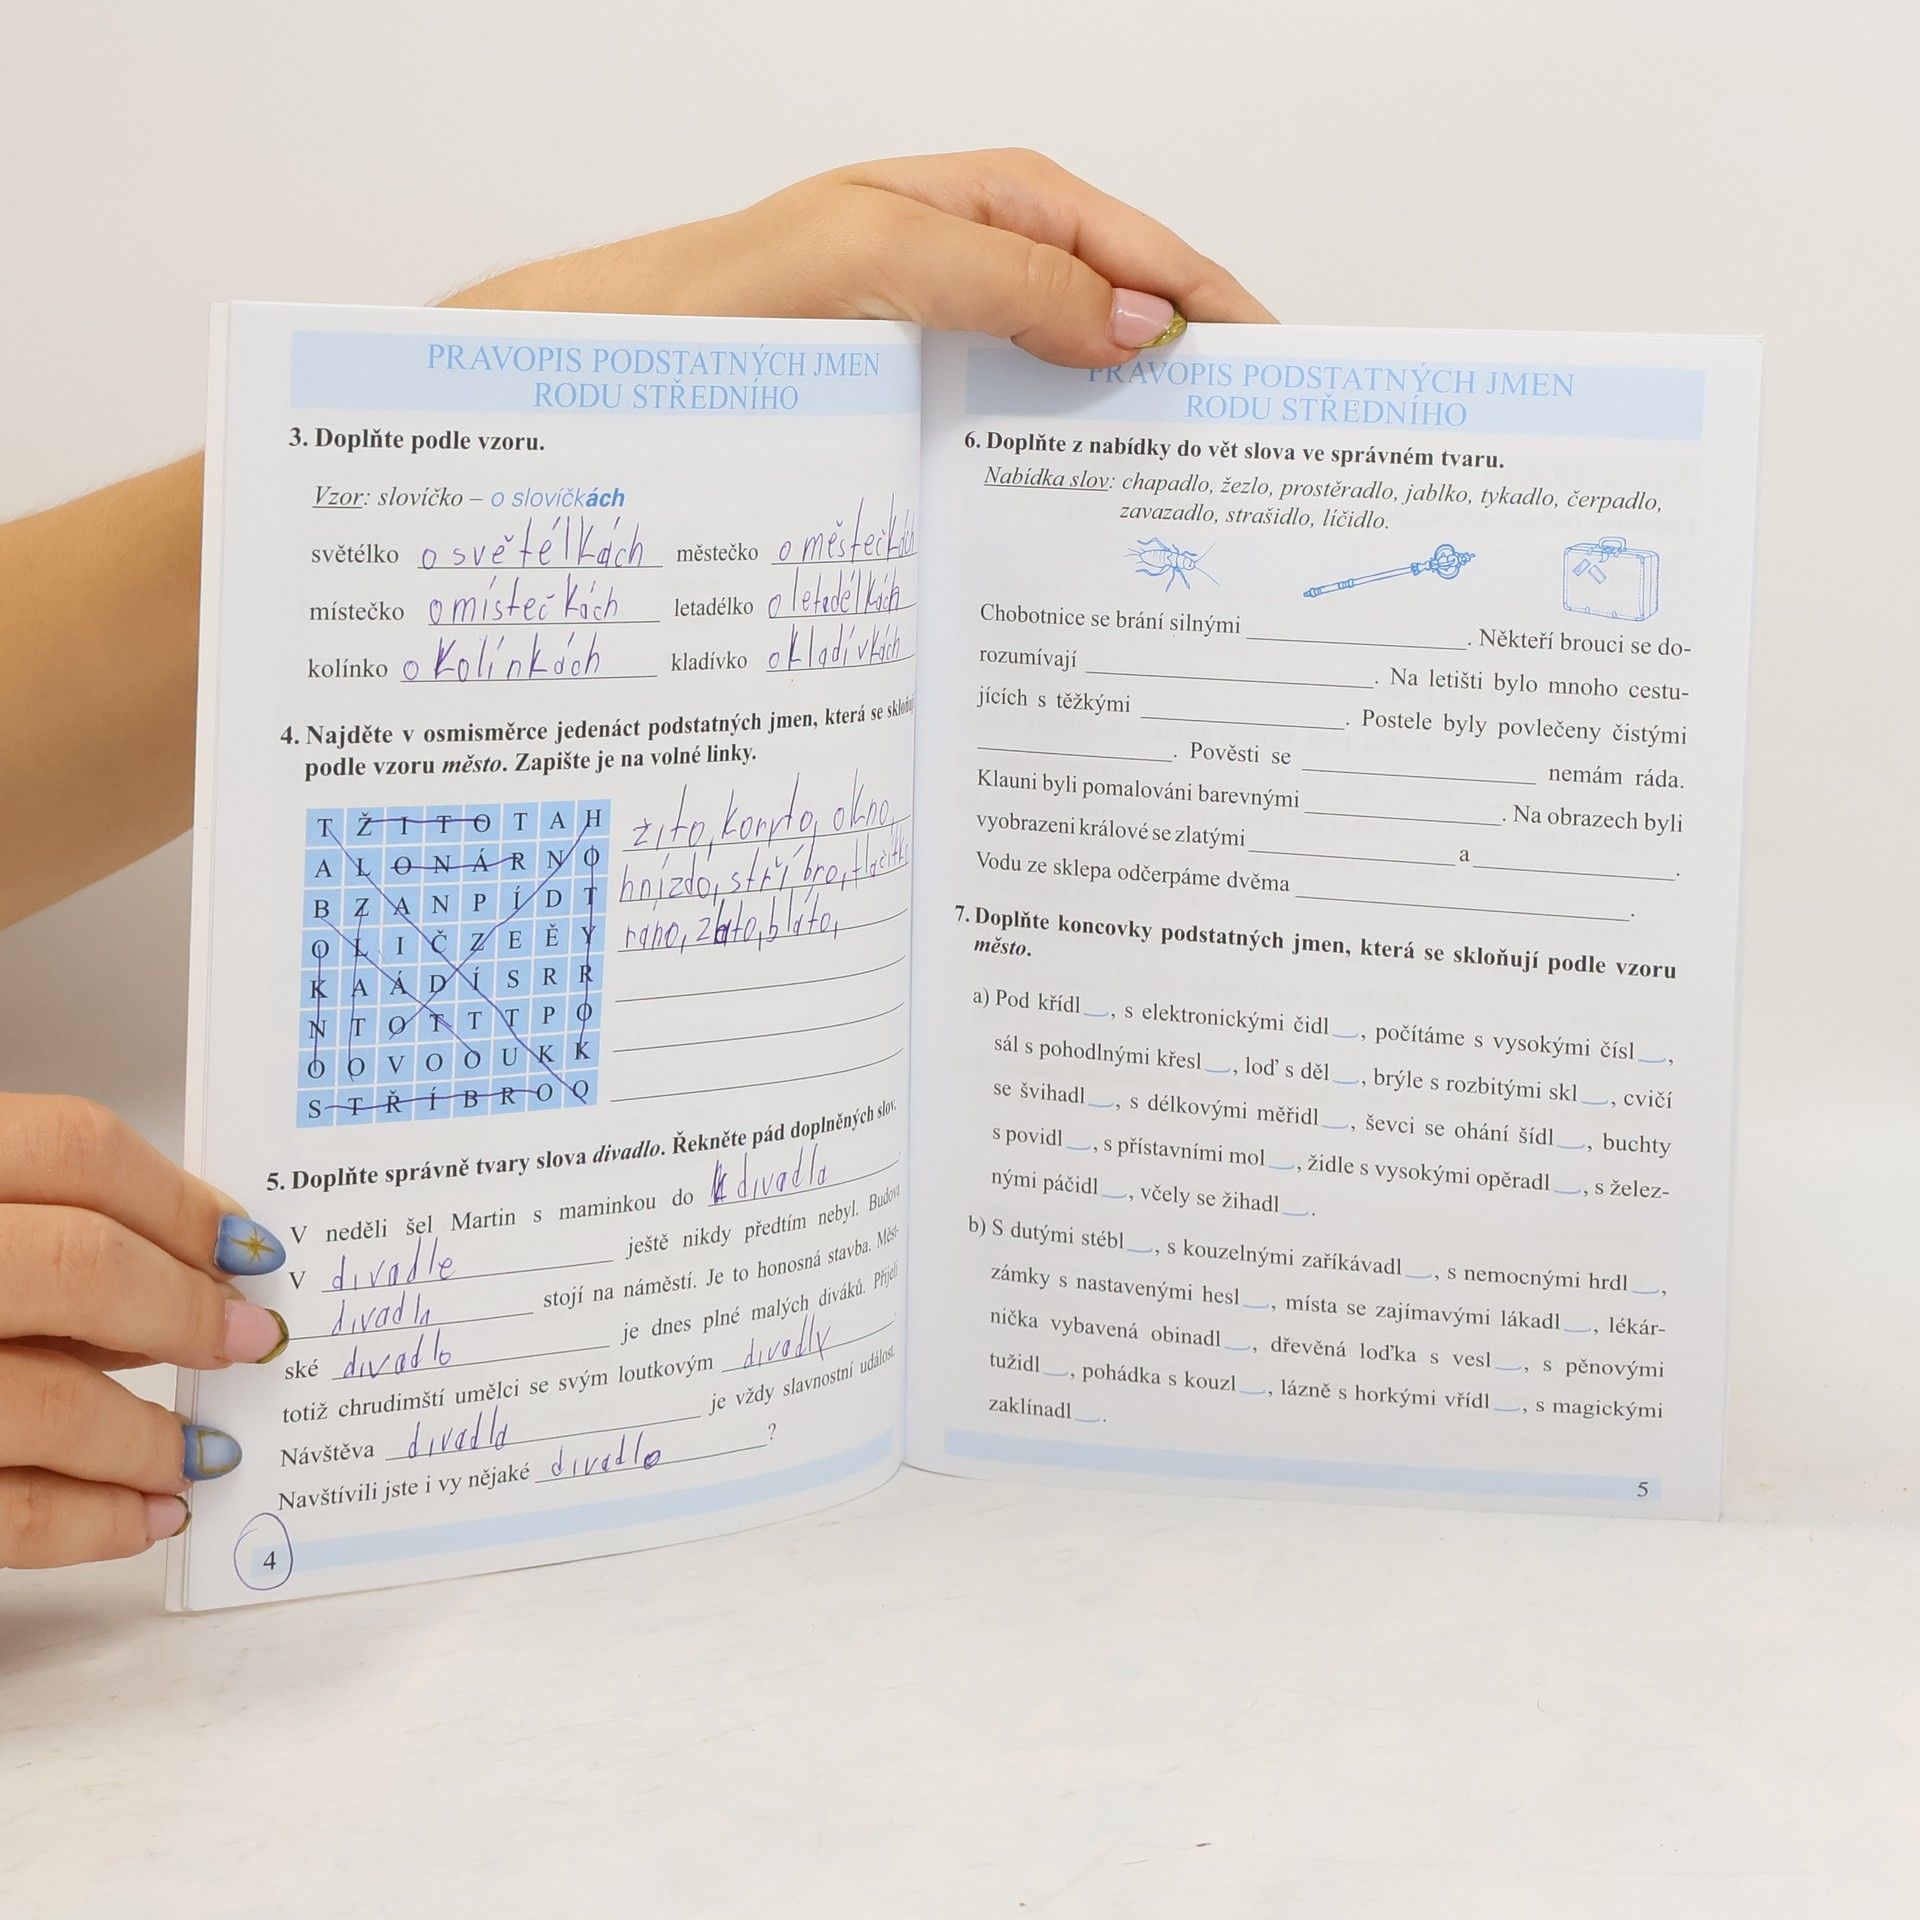 PRAVOPIS PODSTATNÝCH JMEN
RODU STŘEDNÍHO
3. Doplňte podle vzoru.
Vzor: slovíčko – o slovíčkách
světélko o světélkách městečko o městečkách
místečko o místečkách letadélko o letadélkách
kolínko o kolínkách kladívko o kladívkách
4. Najděte v osmisměrce jedenáct podstatných jmen, která se skloňují
podle vzoru město. Zapište je na volné linky.
T Ž I T O T A H
A L O N Á R N O
B Z A N P Í D T
O L I Č Z E Ě Y
K A Á D Í S R R
N T O T T T P O
O O V O O U K K
S T Ř Í B R O O
žito, koryto, okno,
hnízdo, stříbro, tlačítko
ráno, zlato, bláto,
5. Doplňte správně tvary slova divadlo. Řekněte pád doplněných slov.
V neděli šel Martin s maminkou do divadla .
V divadle ještě nikdy předtím nebyl. Budova
divadla stojí na náměstí. Je to honosná stavba. Měst-
ské divadlo je dnes plné malých diváků. Přijeli
totiž chrudimští umělci se svým loutkovým divadly .
Návštěva divadla je vždy slavnostní událost.
Navštívili jste i vy nějaké divadlo ?
4
PRAVOPIS PODSTATNÝCH JMEN
RODU STŘEDNÍHO
6. Doplňte z nabídky do vět slova ve správném tvaru.
Nabídka slov: chapadlo, žezlo, prostěradlo, jablko, tykadlo, čerpadlo,
zavazadlo, strašidlo, líčidlo.
Chobotnice se brání silnými ____. Někteří brouci se do-
rozumívají ____. Na letišti bylo mnoho cestu-
jících s těžkými ____. Postele byly povlečeny čistými
____. Pověsti se ____ nemám ráda.
Klauni byli pomalováni barevnými ____. Na obrazech byli
vyobrazeni králové se zlatými ____ a ____.
Vodu ze sklepa odčerpáme dvěma ____.
7. Doplňte koncovky podstatných jmen, která se skloňují podle vzoru
město.
a) Pod křídl__, s elektronickými čidl__, počítáme s vysokými čísl__,
sál s pohodlnými křesl__, loď s děl__, brýle s rozbitými skl__, cvičí
se švihadl__, s délkovými měřidl__, ševci se ohání šídl__, buchty
s povidl__, s přístavními mol__, židle s vysokými opěradl__, s želez-
nými páčidl__, včely se žihadl__.
b) S dutými stébl__, s kouzelnými zaříkávadl__, s nemocnými hrdl__,
zámky s nastavenými hesl__, místa se zajímavými lákadl__, lékár-
nička vybavená obinadl__, dřevěná loďka s vesl__, s pěnovými
tužidl__, pohádka s kouzl__, lázně s horkými vřídl__, s magickými
zaklínadl__.
5